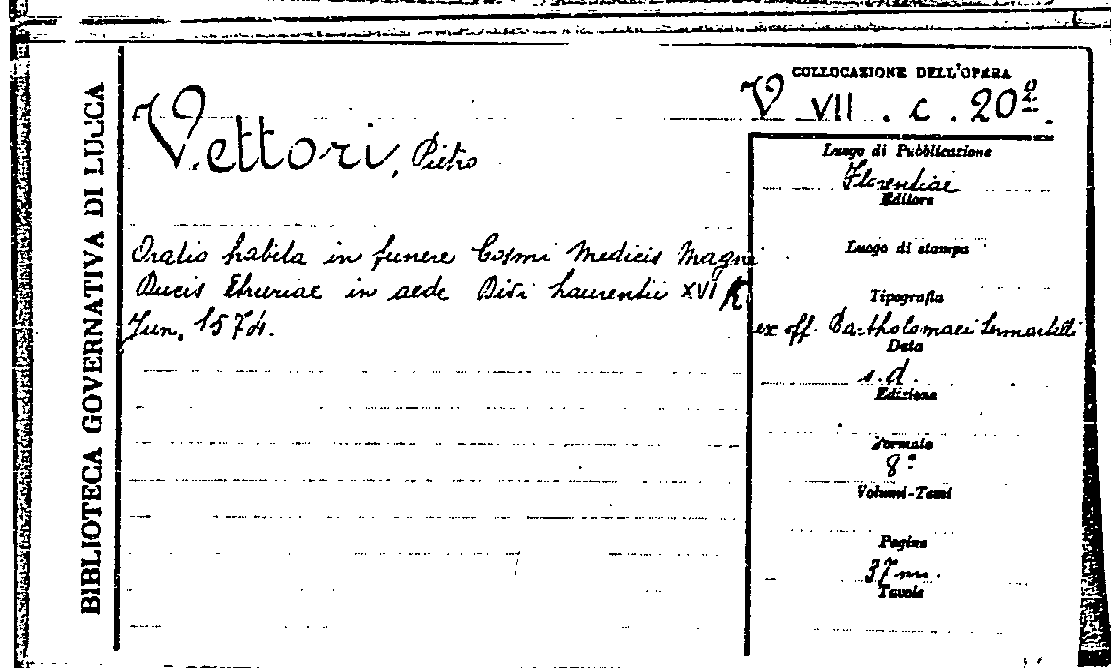 BIBLIOTECA GOVERNATIVA DI LUCCA
Vettori, Pietro
Oratio habita in funere Cosmi Medicis Magni
Ducis Etruriae in aede Divi Laurentii XVI K
Jun. 1574.
COLLOCAZIONE DELL'OPERA
V VII . c . 20º
Luogo di Pubblicazione
Florentiae
Editore
Luogo di stampa
Tipografia
ex off. Bartholomaei Sermartelli
Data
s.d.
Edizione
Formato
8º
Volumi-Tomi
Pagine
37
Tavole